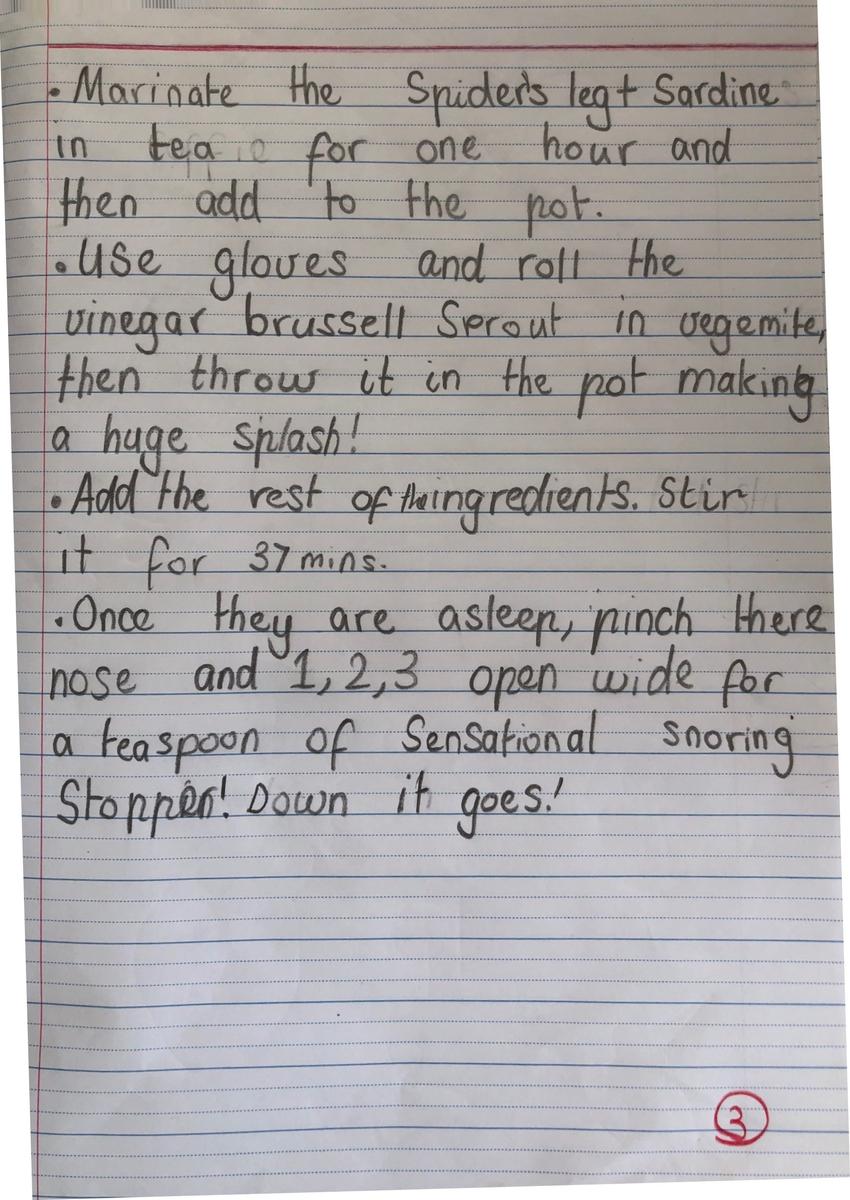 • Marinate the Spider's leg + Sardine
in tea for one hour and
then add to the pot.
• Use gloves and roll the
vinegar brussell Sprout in vegemite,
then throw it in the pot making
a huge splash!
• Add the rest of the ingredients. Stir
it for 37 mins.
• Once they are asleep, pinch there
nose and 1, 2, 3 open wide for
a teaspoon of Sensational snoring
Stopper! Down it goes!
3